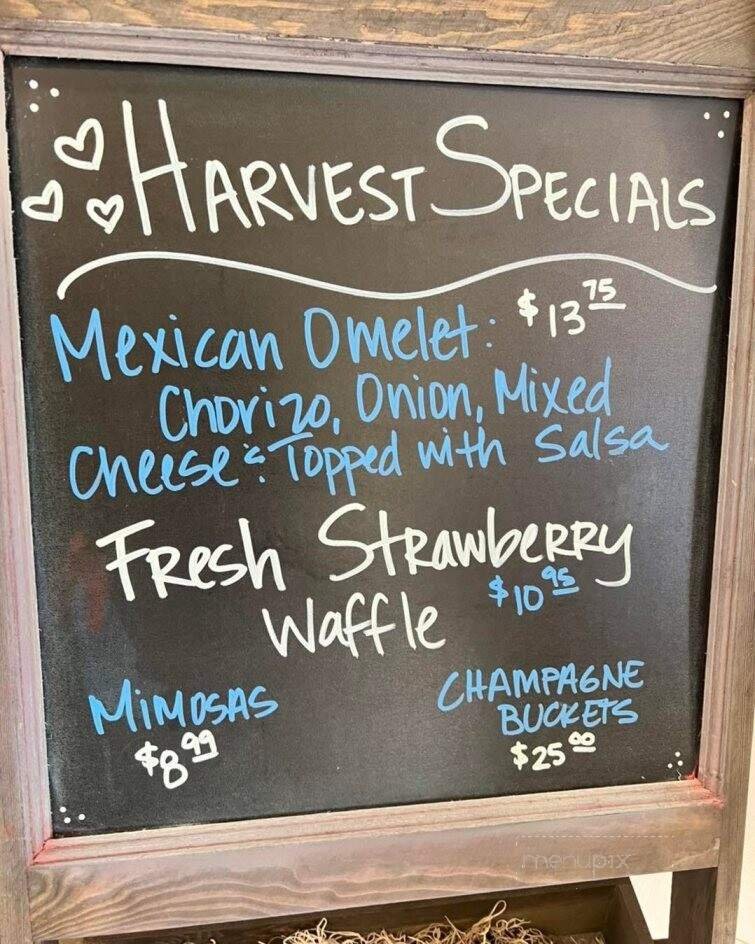 HARVEST SPECIALS
Mexican Omelet: $13 75
Chorizo, Onion, Mixed
Cheese & Topped with Salsa
Fresh Strawberry
Waffle $10 95
MIMOSAS
$8 99
CHAMPAGNE
BUCKETS
$25 00
menupix